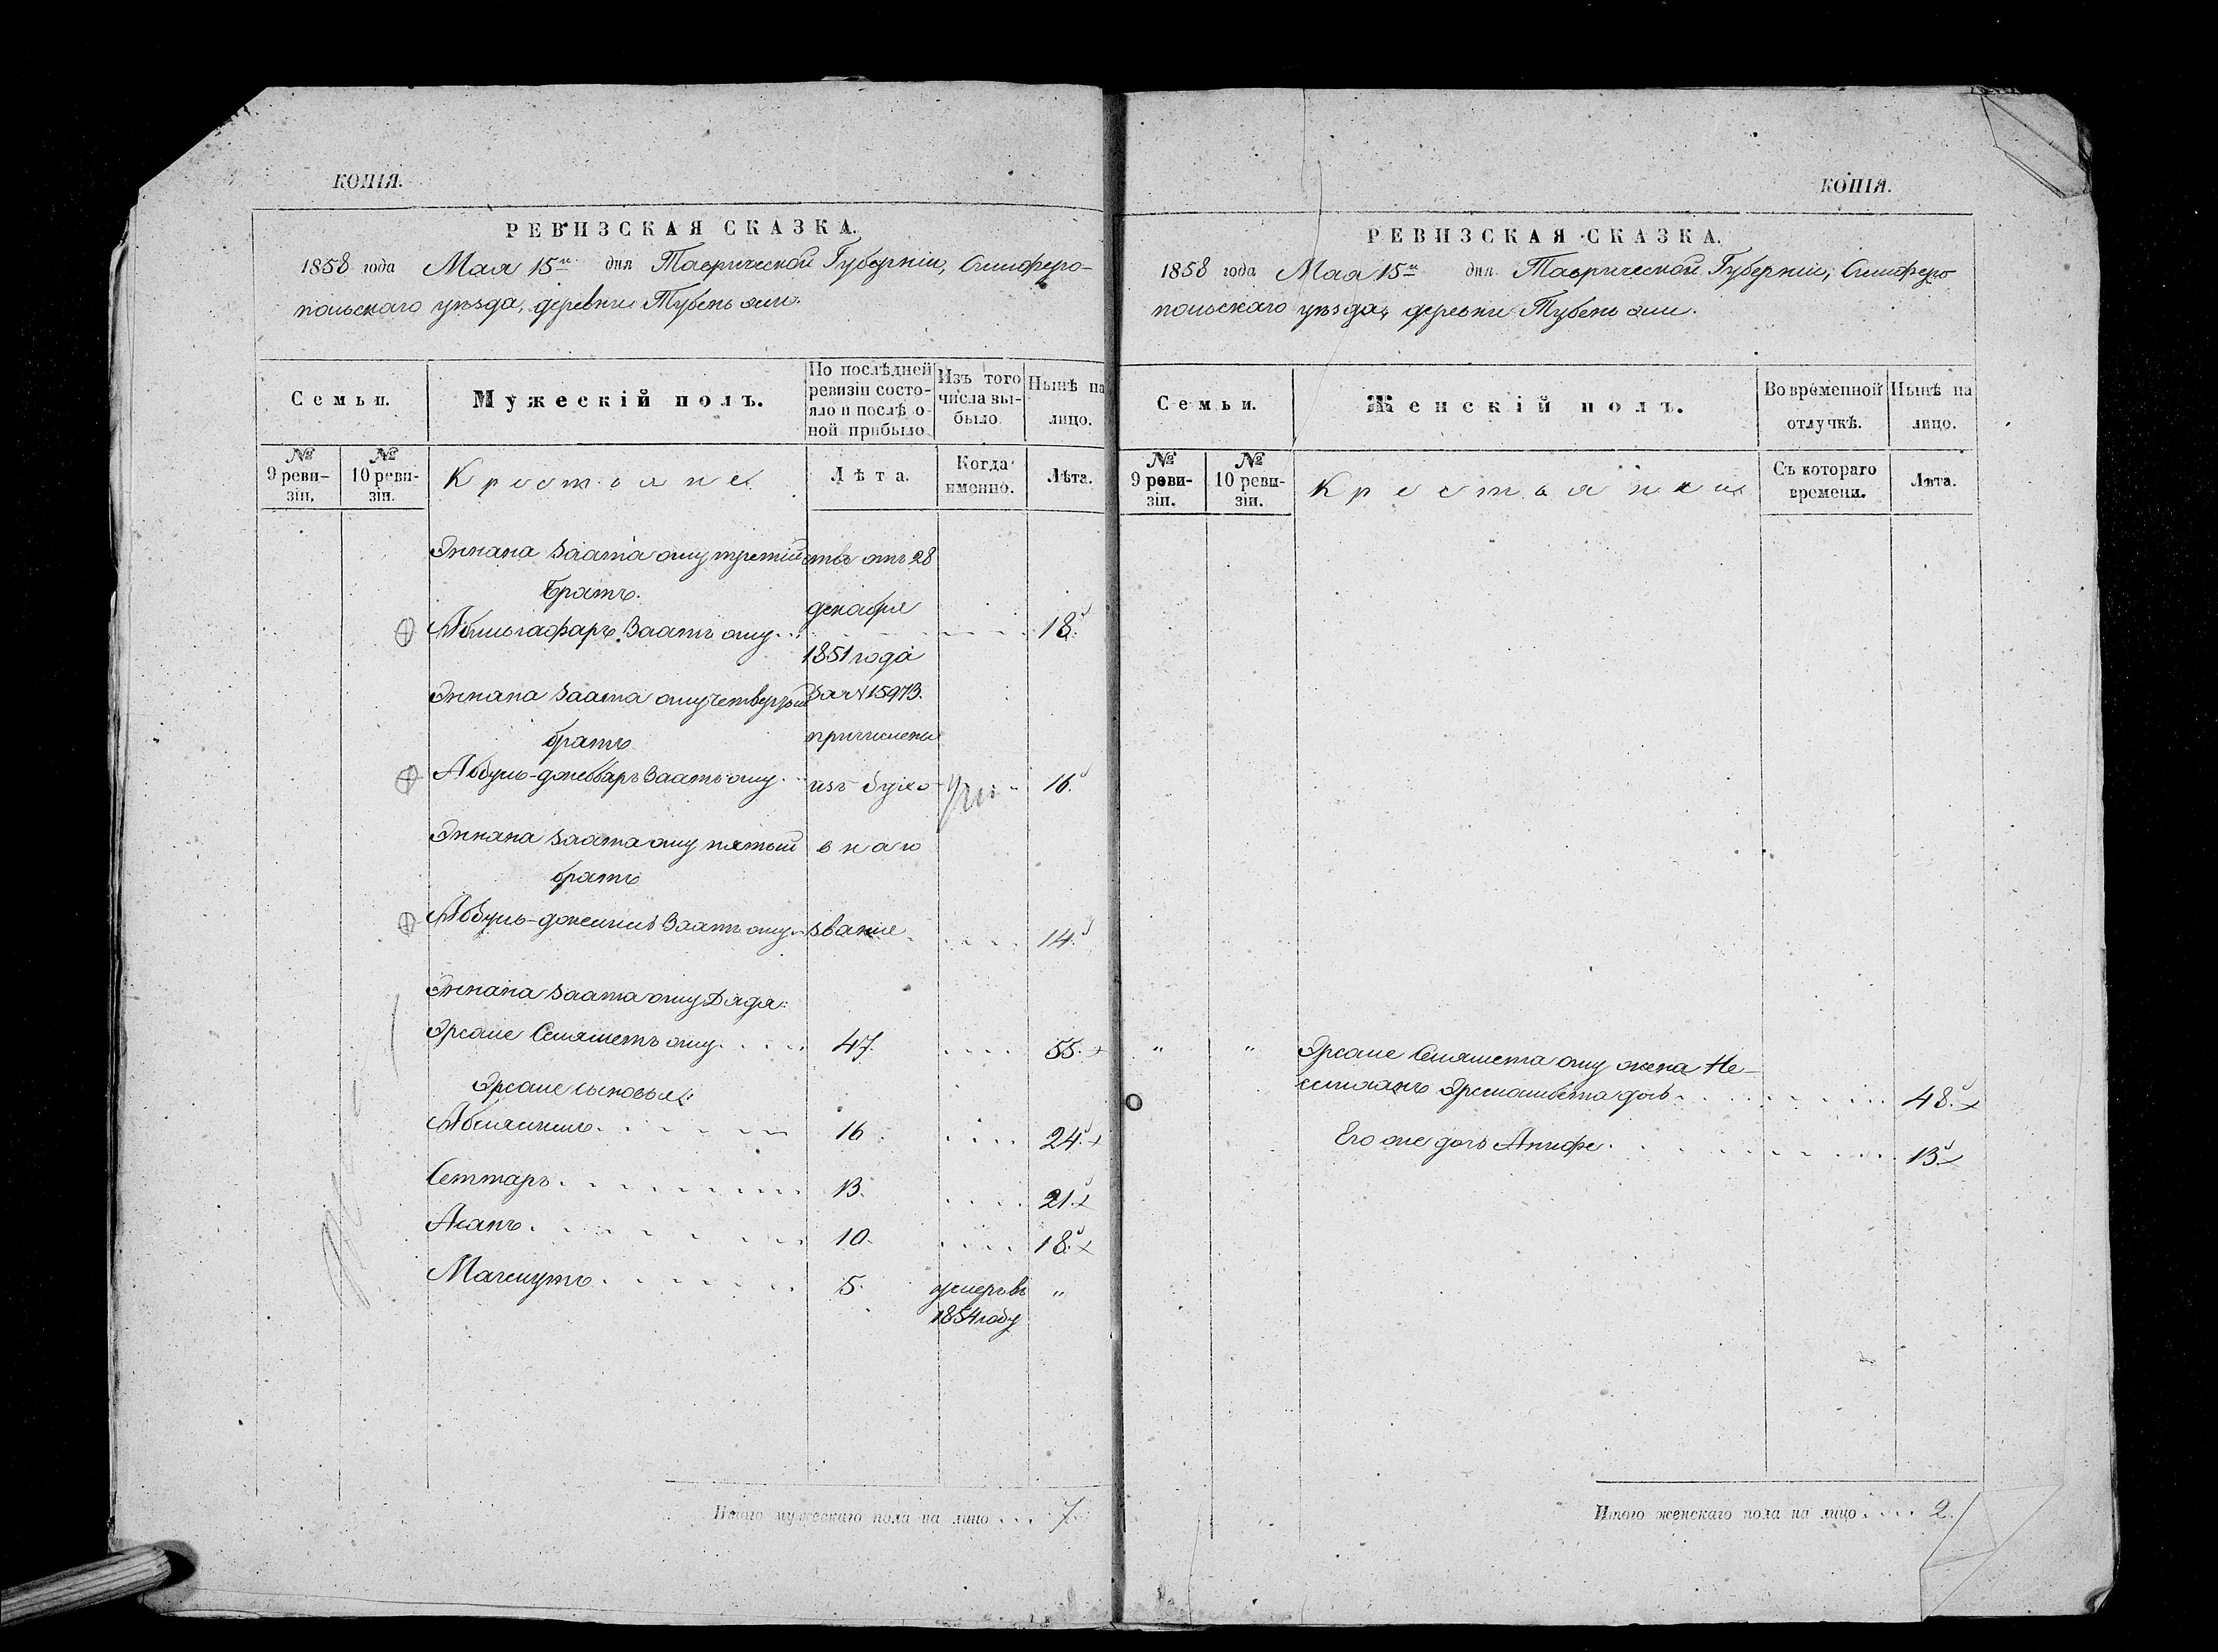 КОПІЯ.
РЕВИЗСКАЯ СКАЗКА.
1858 года Мая 15го дня Таврической Губерніи, Симферо-
польскаго уѣзда, деревни Тубень эли.
Семьи.
Мужескій полъ.
По послѣдней ревизіи состо-
яло и послѣ о-
ной прибыло
Изъ того
числа вы-
было
Нынѣ на
лицо.
№
9 реви-
зіи,
№
10 реви-
зіи.
Крестьяне
Лѣта.
Когда
именно.
Лѣта.
Заата оглу третій
ству отъ 28
братъ.
декабря
Абльгафаръ Заатъ оглу
18.
1851 года
Заата оглу четвертый
За № 15973.
братъ
причислены
Абдуль-джеббаръ Заатъ оглу
изъ духо-
16.
Заата оглу пятый
внаго
братъ
Абдуль-джемиль Заатъ оглу
званія
14.
Заата оглу Дядя:
оглу
47.
55.
сыновья:
16
24.
Сеттаръ
13.
21.
Асанъ
10.
18.
Магмутъ
5.
умеръ въ
"
1854 году
Итого мужескаго пола на лицо 7.
КОПІЯ.
РЕВИЗСКАЯ СКАЗКА.
1858 года Мая 15го дня Таврической Губерніи, Симферо-
польскаго уѣзда, деревни Тубень эли.
Семьи.
Женскій полъ.
Во временной
отлучкѣ.
Нынѣ на
лицо.
№
9 реви-
зіи.
№
10 реви-
зіи.
Крестьянки
Съ котораго
времени.
Лѣта.
" " оглу жена
дочь 48.
Его же дочь Анифе 13.
Итого женскаго пола на лицо 2.